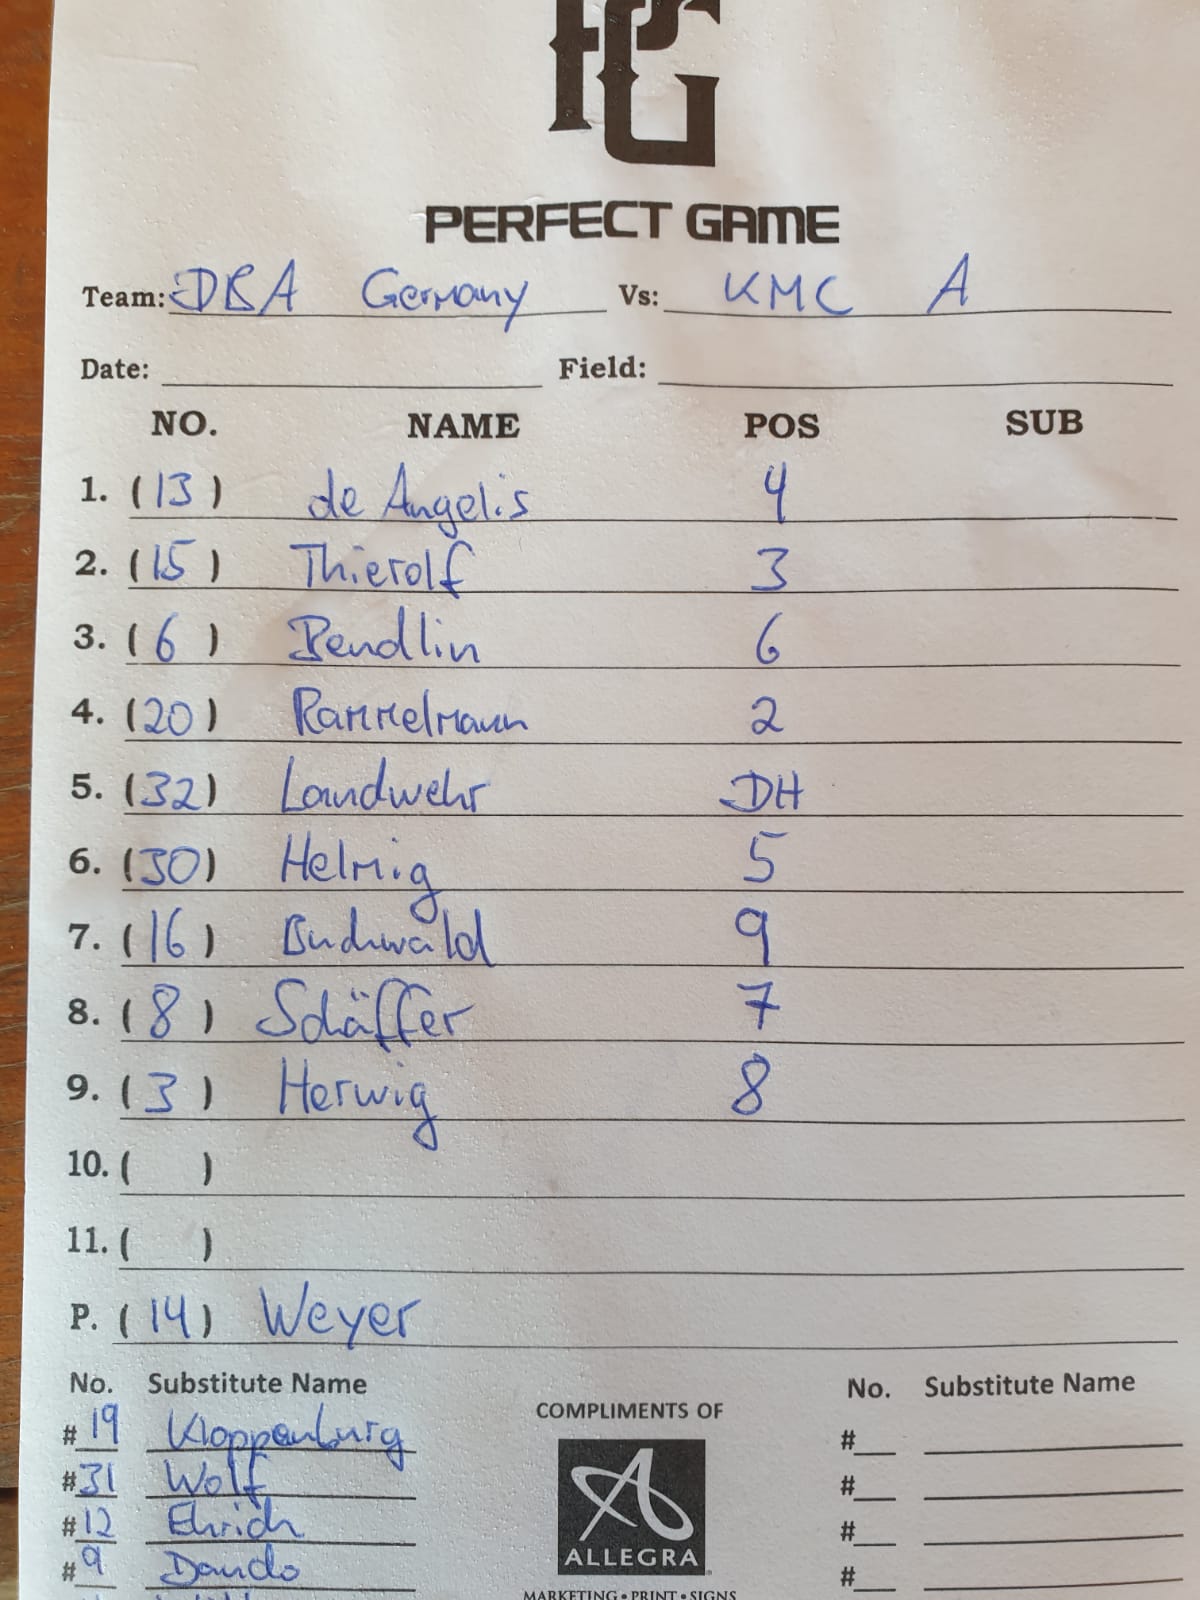 PG
PERFECT GAME
Team: DBA Germany Vs: KMC A
Date: Field:
NO. NAME POS SUB
1. (13) de Angelis 4
2. (15) Thierolf 3
3. (6) Bendlin 6
4. (20) Rammelmann 2
5. (32) Landwehr DH
6. (30) Helmig 5
7. (16) Buchwald 9
8. (8) Schäffer 7
9. (3) Herwig 8
10. ( )
11. ( )
P. (14) Weyer
No. Substitute Name
#19 Kloppenburg
#31 Wolf
#12 Ehrich
#9 Dando
COMPLIMENTS OF
ALLEGRA
MARKETING • PRINT • SIGNS
No. Substitute Name
#
#
#
#